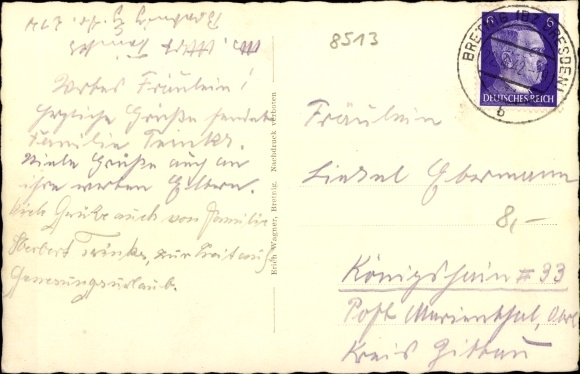 8513
Wertes Fräulein!
Herzliche Grüße sendet
Familie Trinks.
Viele Grüße auch an
ihre werten Eltern.
Grüße auch von Familie
Herbert Trinks, zur Zeit auf
Genesungsurlaub.
Reich Wagner, Bretnig. Nachdruck verboten
6 6
DEUTSCHES REICH
BRETNIG (BZ. DRESDEN)
b
Fräulein
Liesel Ebermann
8,-
Königshain # 33
Post Marienthal,
Kreis Zittau